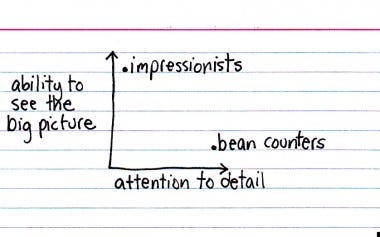 .impressionists
ability to
see the
big picture
.bean counters
attention to detail